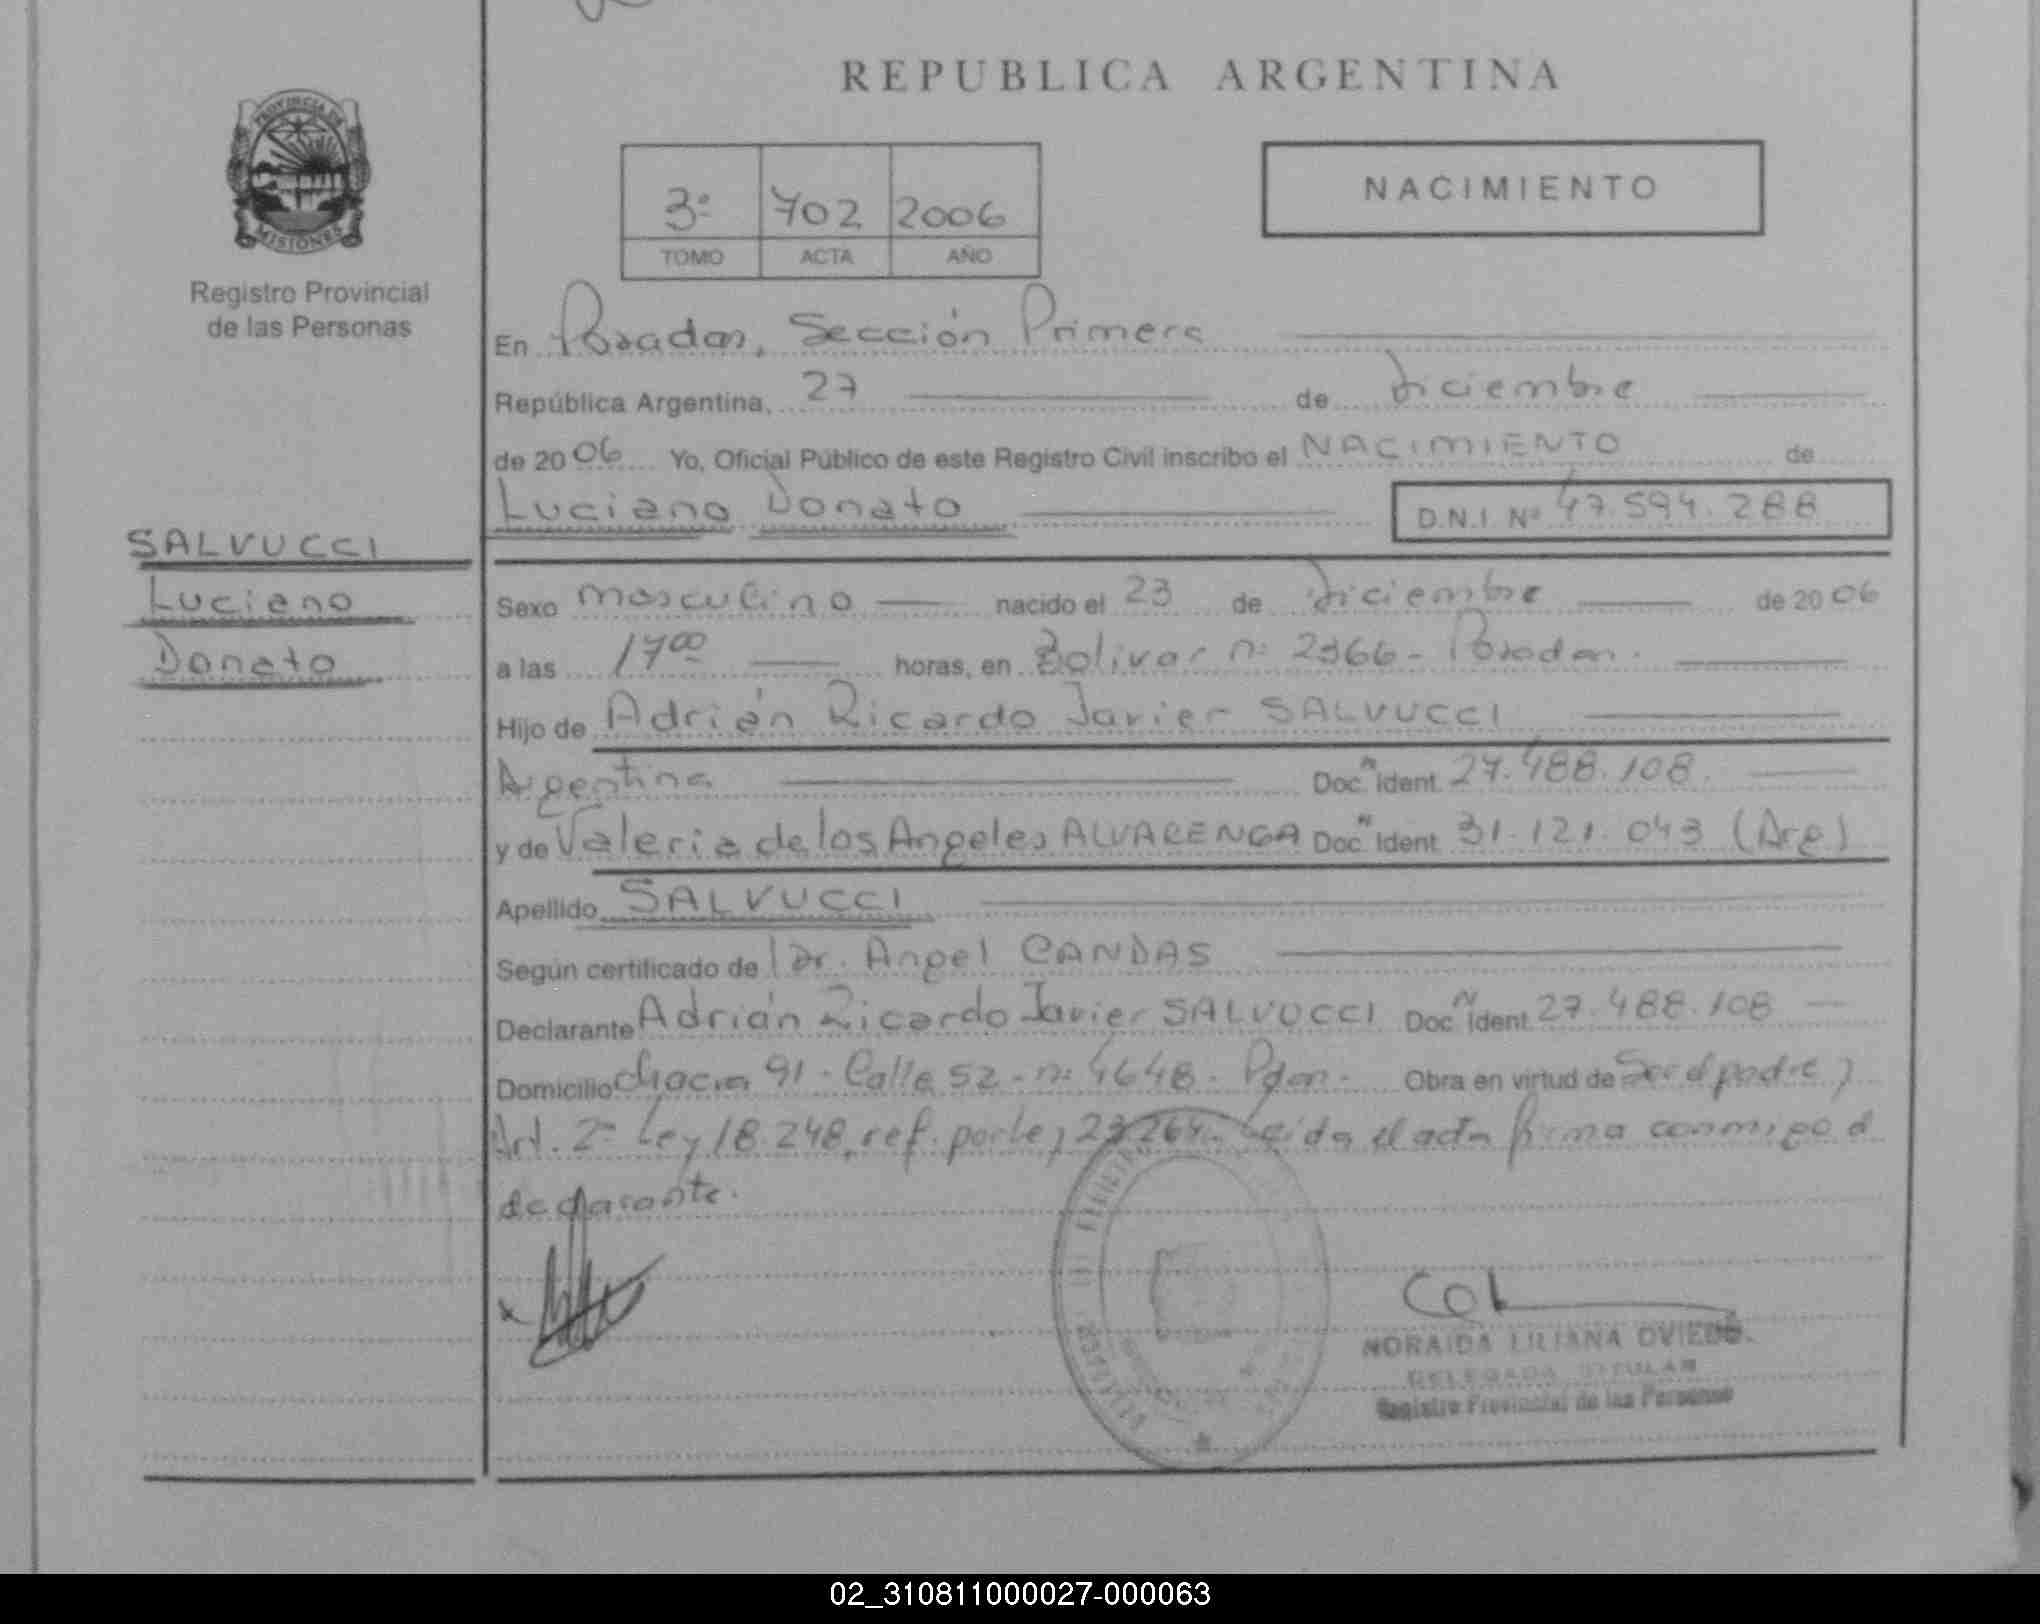 REPUBLICA ARGENTINA
PROVINCIA DE
MISIONES
Registro Provincial
de las Personas
3º 702 2006
TOMO ACTA AÑO
NACIMIENTO
En Posadas, Sección Primera
República Argentina, 27 de diciembre
de 2006 Yo, Oficial Público de este Registro Civil inscribo el NACIMIENTO de
Luciano Donato D.N.I Nº 47.594.288
SALVUCCI
Luciano
Donato
Sexo masculino nacido el 23 de diciembre de 2006
a las 17⁰⁰ horas, en Bolivar nº 2366 - Posadas.
Hijo de Adrián Ricardo Javier SALVUCCI
Argentina Doc. Ident. 27.488.108.
y de Valeria de los Angeles ALVARENGA Doc. Ident. 31.121.043 (Arg)
Apellido SALVUCCI
Según certificado de Dr. Angel CANDAS
Declarante Adrián Ricardo Javier SALVUCCI Doc. Ident. 27.488.108
Domicilio chacra 91 - Calle 52 - nº 4648 - Pdas. Obra en virtud de Ser el padre y
Art. 2º Ley 18.248, ref. por ley 23264. Leida el acta firma conmigo el
declarante.
NORAIDA LILIANA OVIEDO
DELEGADA TITULAR
Registro Provincial de las Personas
02_310811000027-000063